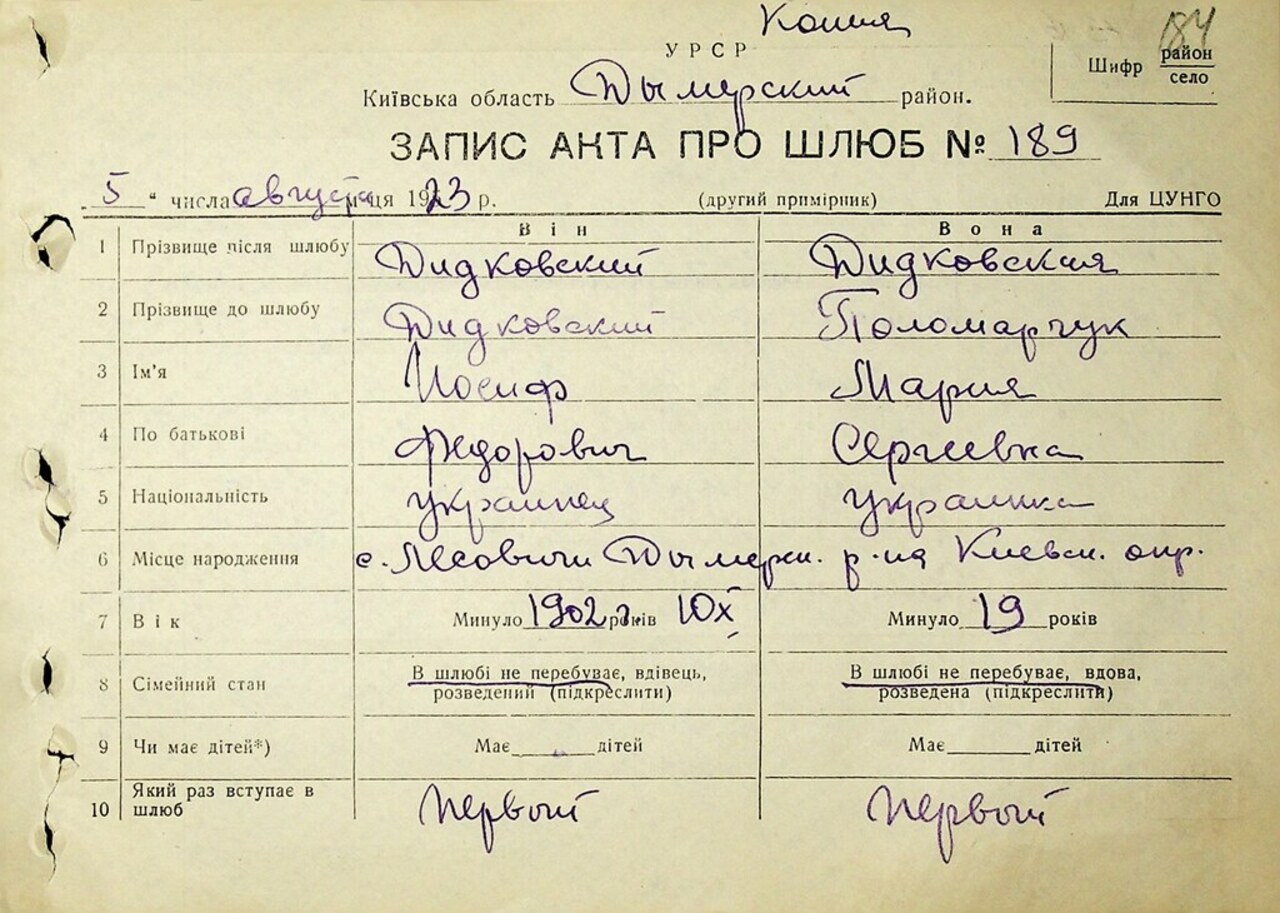 Копия
184
УРСР
Шифр район село
Київська область Дымерский район.
ЗАПИС АКТА ПРО ШЛЮБ № 189
5 " числа августа місяця 1923 р. (другий примірник) Для ЦУНГО
Він Вона
1 Прізвище після шлюбу Дидковский Дидковская
2 Прізвище до шлюбу Дидковский Поломарчук
3 Ім'я Иосиф Мария
4 По батькові Федорович Сергеевна
5 Національність украинец украинка
6 Місце народження с. Лесовичи Дымерск. р-на Киевск. окр.
7 Вік Минуло 1902 г. років 10х Минуло 19 років
8 Сімейний стан В шлюбі не перебуває, вдівець, розведений (підкреслити) В шлюбі не перебуває, вдова, розведена (підкреслити)
9 Чи має дітей*) Має ______ дітей Має ______ дітей
10 Який раз вступає в шлюб первый первый